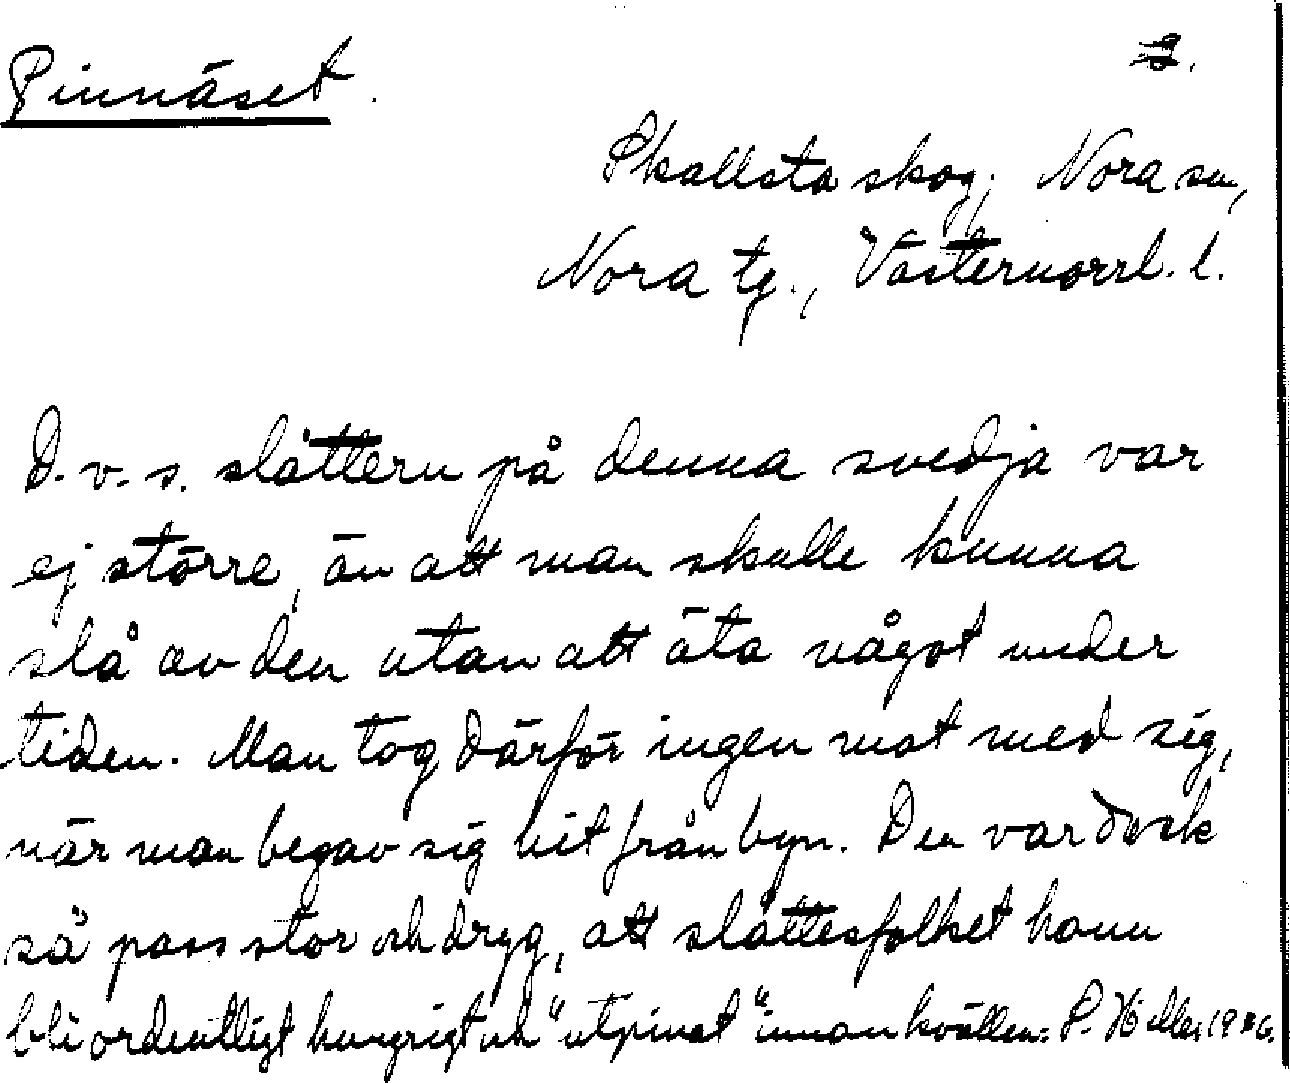 Pinnäset.
2.
Skallsta skog, Nora sn,
Nora tg., Västernorrl. l.
D.v.s. slåttern på denna svedja var
ej större, än att man skulle kunna
slå av den utan att äta något under
tiden. Man tog därför ingen mat med sig,
när man begav sig hit från byn. Den var dock
så pass stor och dryg, att slåttesfolket hann
bli ordentligt hungrigt och "utpinat" innan kvällen.